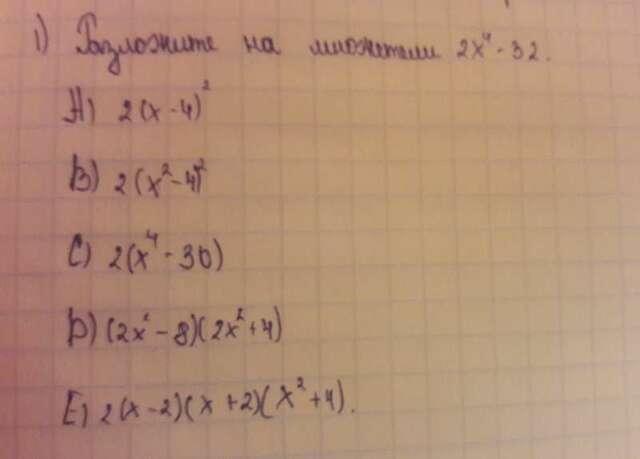 1) Разложите на множетели 2x⁴-32.
A) 2(x-4)²
B) 2(x²-4)²
C) 2(x⁴-30)
D) (2x²-8)(2x²+4)
E) 2(x-2)(x+2)(x²+4).